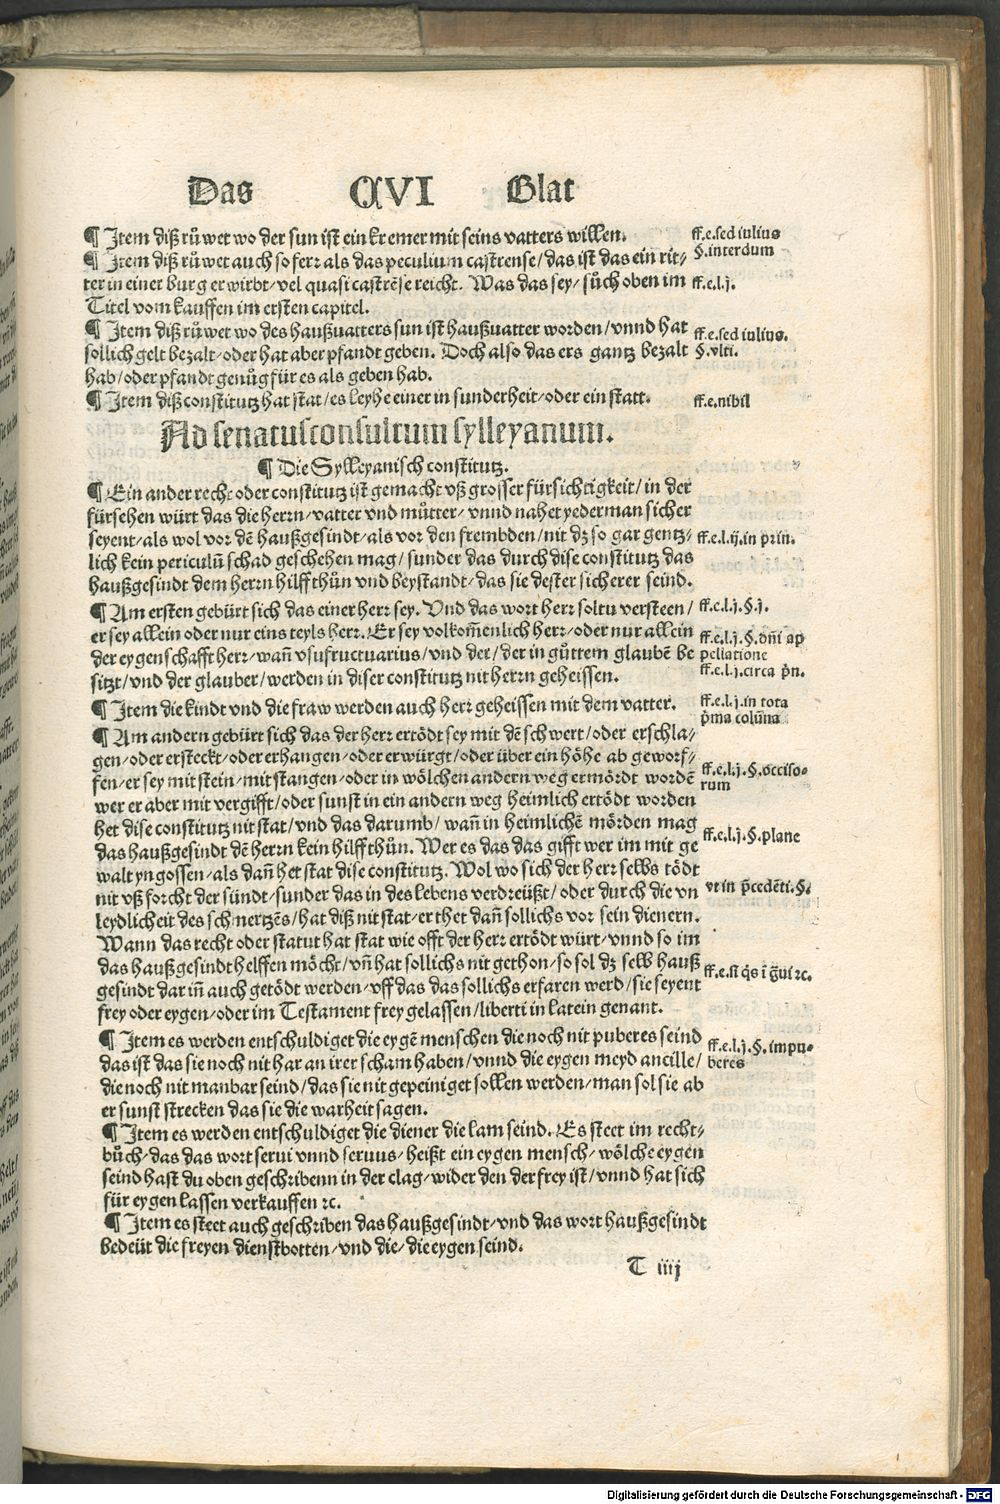 Das CXVI Blat
¶ Item diß růwet wo der sun ist ein kremer mit seins vatters willen.
ff.e.sed iulius
§.interdum
¶ Item diß růwet auch so ferr als das peculium castrense/das ist das ein rit⸗
ter in einer burg erwirbt/vel quasi castrēse reicht. Was das sey/sůch oben im
ff.e.l.j.
Titel vom kauffen im ersten capitel.
¶ Item diß růwet wo des haußuatters sun ist haußuatter worden/vnnd hat
ff.e.sed iulius.
sollich gelt bezalt/oder hat aber pfandt geben. Doch also das ers gantz bezalt
§.vlti.
hab/oder pfandt genůg für es als geben hab.
¶ Item diß constitutz hat stat/es leyhe einer in sunderheit/oder ein statt.
ff.e.nihil
Ad senatusconsultum sylleyanum.
¶ Die Sylleyanisch constitutz.
¶ Ein ander recht oder constitutz ist gemacht vß grosser fürsichtigkeit/in der
fürsehen würt das die herrn/vatter vnd můtter/vnnd nahet yederman sicher
seyent/als wol vor dē haußgesindt/als vor den frembden/nit dz so gar gentz⸗
ff.e.l.ij.in prin.
lich kein periculū schad geschehen mag/sunder das durch dise constitutz das
haußgesindt dem herrn hilff thůn vnd beystandt/das sie dester sicherer seind.
¶ Am ersten gebürt sich das einer herr sey. Vnd das wort herr soltu versteen/
ff.e.l.j.§.j.
er sey allein oder nur eins teyls herr. Er sey volkom̄enlich herr/oder nur allein
ff.e.l.j.§.dn̄i ap
der eygenschafft herr/wan̄ vsufructuarius/vnd der/der in gůttem glaubē be
pellatione
sitzt/vnd der glauber/werden in diser constitutz nit herrn geheissen.
ff.e.l.j.circa p̄n.
¶ Item die kindt vnd die fraw werden auch herr geheissen mit dem vatter.
ff.e.l.j.in tota
p̄ma colūna
¶ Am andern gebürt sich das der herr ertödt sey mit dē schwert/oder erschla⸗
gen/oder ersteckt/oder erhangen/oder erwürgt/oder über ein höhe ab geworf⸗
fen/er sey mit stein/mit stangen/oder in wölchen andern weg ermördt wordē
ff.e.l.j.§.occiso⸗
rum
wer er aber mit vergifft/oder sunst in ein andern weg heimlich ertödt worden
het dise constitutz nit stat/vnd das darumb/wan̄ in heimlichē mörden mag
ff.e.l.j.§.plane
das haußgesindt dē herrn kein hilff thůn. Wer es das das gifft wer im mit ge
walt yngossen/als dan̄ het stat dise constitutz. Wol wo sich der herr selbs tödt
nit vß forcht der sündt/sunder das in des lebens verdreüßt/oder durch die vn
vt in p̄cedēti.§.
leydlicheit des schmertzēs/hat diß nit stat/er thet dan̄ sollichs vor sein dienern.
Wann das recht oder statut hat stat wie offt der herr ertödt würt/vnnd so im
das haußgesindt helffen möcht/vn̄ hat sollichs nit gethon/so sol dz selb hauß
ff.e.si q̄s ī g̃ui ⁊c.
gesindt dar in̄ auch getödt werden/vff das das sollichs erfaren werd/sie seyent
frey oder eygen/oder im Testament frey gelassen/liberti in latein genant.
¶ Item es werden entschuldiget die eygē menschen die noch nit puberes seind
ff.e.l.j.§.impu⸗
beres
das ist das sie noch nit har an irer scham haben/vnnd die eygen meyd ancille/
die noch nit manbar seind/das sie nit gepeiniget sollen werden/man sol sie ab
er sunst strecken das sie die warheit sagen.
¶ Item es werden entschuldiget die diener die lam seind. Es steet im recht⸗
bůch/das das wort serui vnnd seruus/heißt ein eygen mensch/wölche eygen
seind hast du oben geschribenn in der clag/wider den der frey ist/vnnd hat sich
für eygen lassen verkauffen ⁊c.
¶ Item es steet auch geschriben das haußgesindt/vnd das wort haußgesindt
bedeüt die freyen dienstbotten/vnd die/die eygen seind.
T iiij
Digitalisierung gefördert durch die Deutsche Forschungsgemeinschaft - DFG